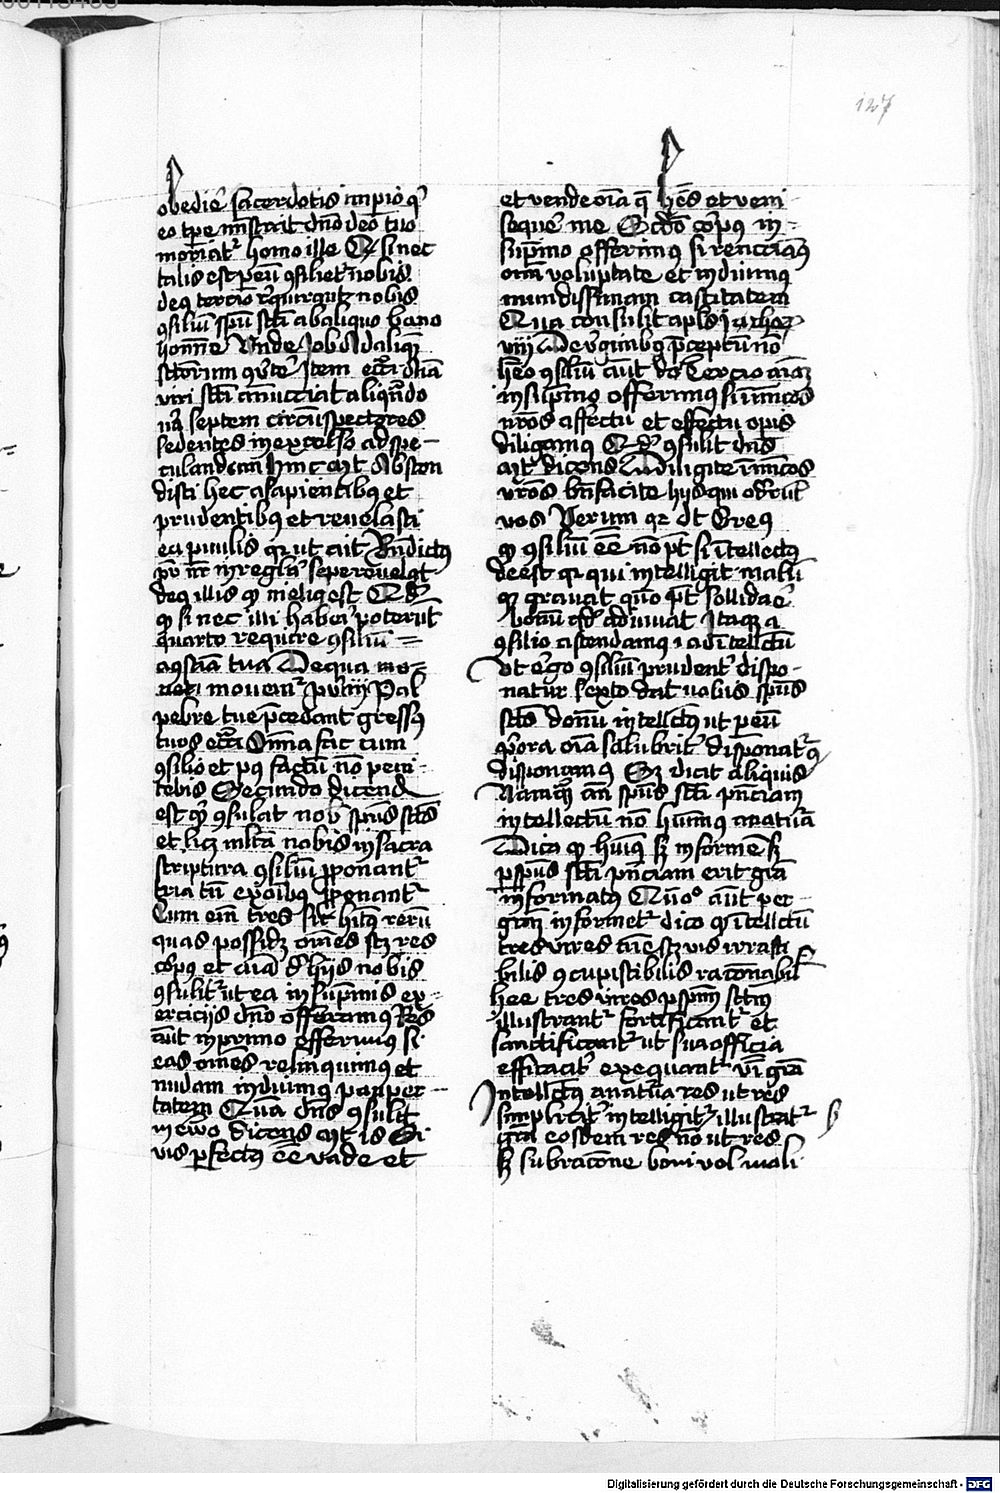 127
obedie' sacerdotis imp̄io q'
eo tp̄e mīstrat dn̄o deo tuo
moriat' homo ille Q' si nec
talis est p eū ꝯsiliet' nobis
deꝯ tercio requirenꝫ nobis
ꝯsiliū spū scī ab aliquo bono
homīe Vnde Iob
sctorum Item eccī
viri sctī annūciat aliqn̄do
septem circūspectores
sedentes in excelso ad spe-
culandum Hinc ayt Abscon
disti hec a sapientibꝯ et
prudentibꝯ et revelasti
ea p̄vulis qr ut ait Bn̄dictꝯ
pr nr in regl'a sepe revelat
deꝯ illis qd meliꝯ est
qd si nec illi haberi poterūt
quarto require ꝯsiliū
a ꝯscīa tua De qua mo-
movemr' Pal
pebre tue p̄cedant gressꝯ
tuos Omīa fac cum
ꝯsilio et pꝯ factū nō peni-
tebis Secundo dicend
est qd ꝯsulat nob spūs sctūs
et licꝫ mltā nobis in sacra
scriptura ꝯsiliū pponant'
tria tn̄ ex oībꝯ pponant'
Cum eni tres sint rerū
quas possidꝫ omēs scꝫ res
corpꝯ et aīa de hijs nobis
ꝯsulit' ut ea in sup̄mis ex-
erciciis dn̄o offeramꝯ Res
aūt in primo offerimꝯ si
eas omēs relinquimꝯ et
nudam induimꝯ pauper-
tatem Qua dn̄s ꝯsulit
in ewo dicens ayt is Si
vis p̄fectꝯ eē vade et
et vende oīa q̄ hēs et veni
sequē me Scdō corpꝯ in
sup̄mo offerimꝯ si renūciamꝯ
omi voluptate et induimꝯ
mundissimam castitatem
Qua consulit apls i a chor
viii De v'ginibꝯ p̄ceptū nō
hēo ꝯsiliū aūt do Tercio aīaꝫ
in sup̄mo offerimꝯ si inīcos
nr̄os affectu et effectu opis
diligamꝯ Et qd ꝯsulit dn̄s
ayt dicens Diligite inīcos
vr̄os bn̄facite hijs qui oderūt
vos Verum qr dt Greg
qd ꝯsiliū eē nō pt si ītellectꝯ
deest qr qui intelligit malū
qd gravat sollidae'
bonū qd adiuvat Itaqꝫ a
ꝯsilio ascendamꝯ ad ītellectū
Ut ergo ꝯsiliū prudent' dispo-
natur sexto dat nobis spūs
sctūs donū intellectꝯ ut p eū
oīa salubrit' disponat'
disponamꝯ Sꝫ dicit aliquis
Nunqd an spūs sctī p̄nciam
intellectū nō hūimꝯ a natūa
Dico qd huiꝯ sꝫ informē sꝫ
p spūs sctī p̄nciam erit grā
informatꝯ Quo aūt per
grām informet' dico qd ītellectū
tres vires tn̄ē scꝫ vis irrasci
bilis ꝯcupiscibilis raconabil
Hee tres vires p spm̄ sctm
illustrant' fortificant' et
sanctificant' ut sua officia
efficacit' exequant' Vn̄ grā
Intellectꝯ a natūa res ut res
simplicit' intelligit' illustrat'
grā eosdem res nō ut res
sꝫ sub racōne boni vel mali
Digitalisierung gefördert durch die Deutsche Forschungsgemeinschaft - DFG